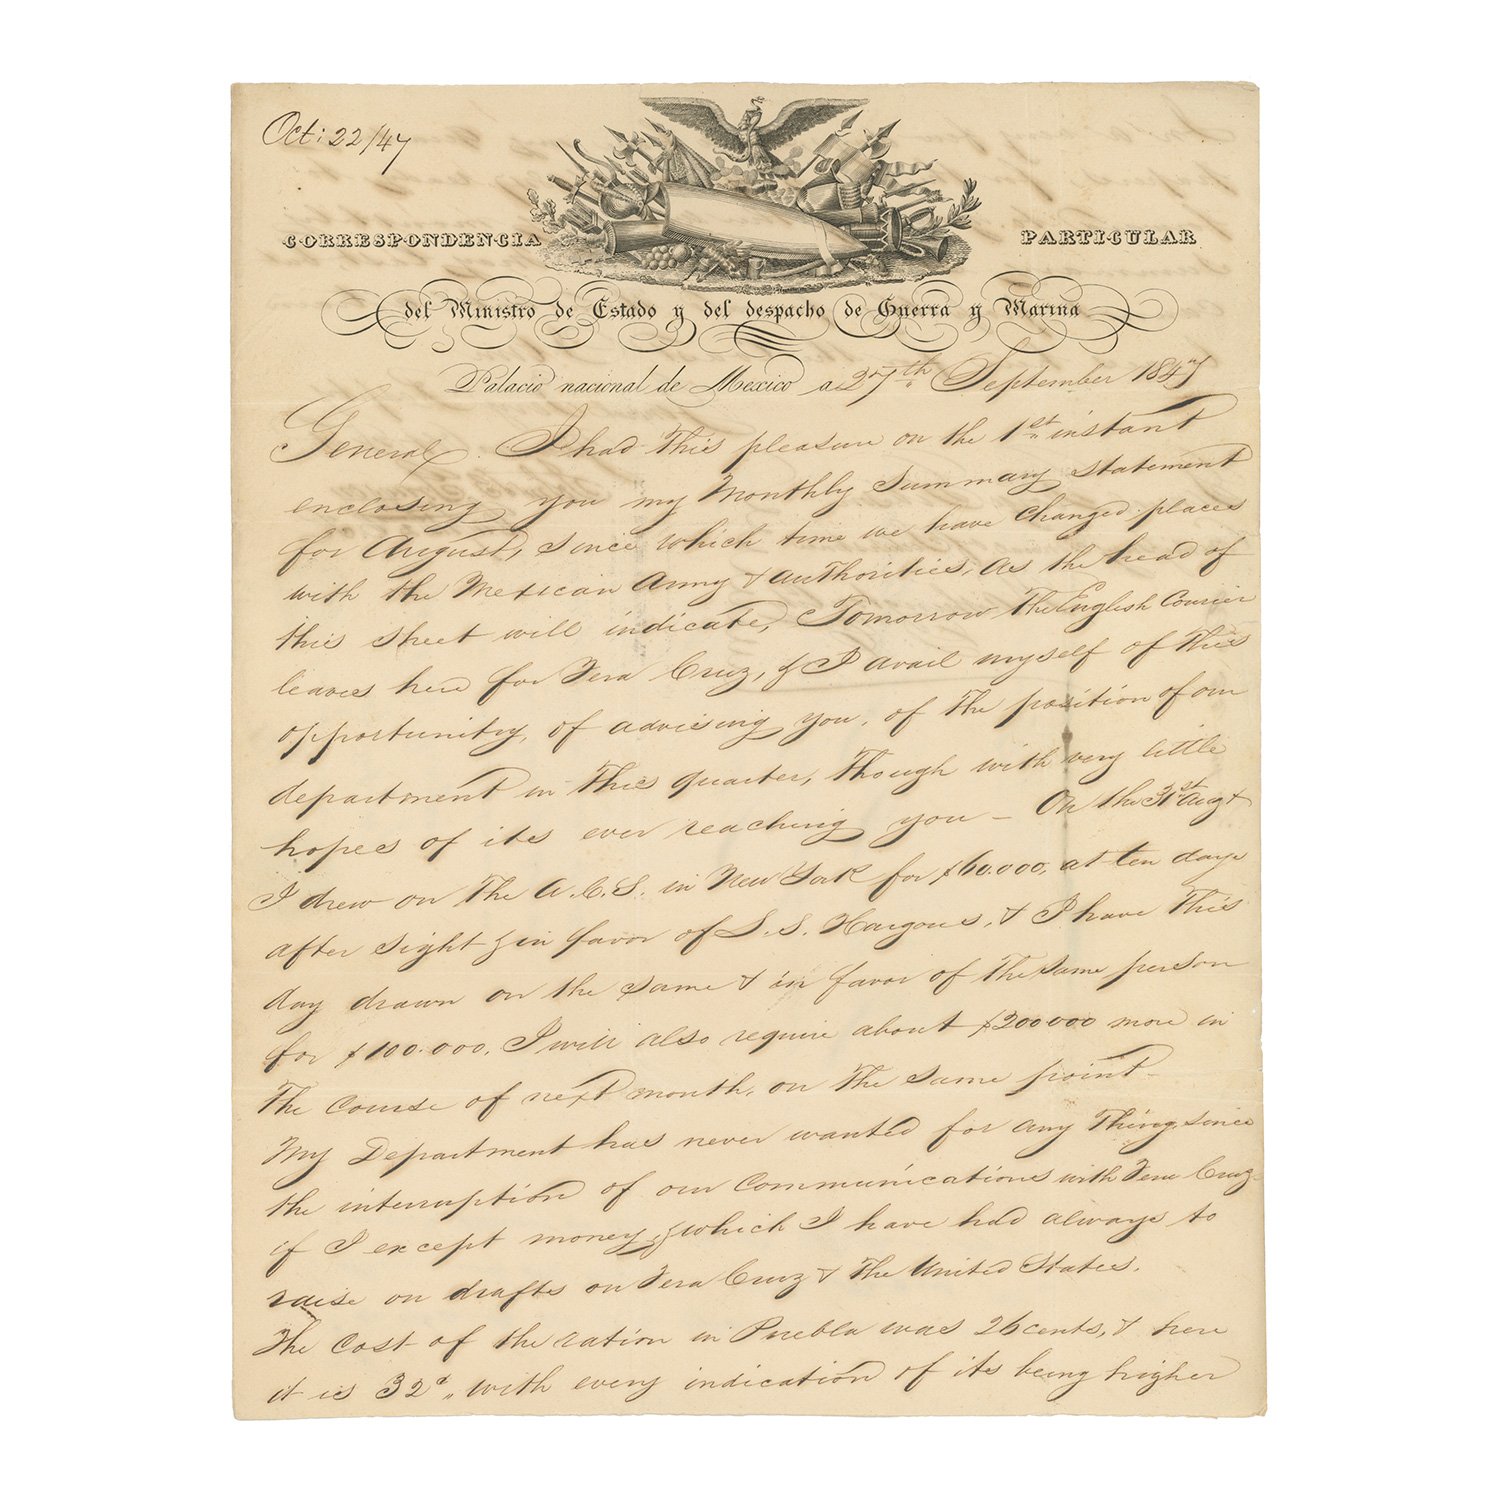 Oct: 22/47
CORRESPONDENCIA PARTICULAR
del Ministro de Estado y del despacho de Guerra y Marina
Palacio nacional de Mexico a 27th September 1847
General. I had this pleasure on the 1st instant
enclosing you my Monthly Summary Statement
for August, since which time we have changed places
with the Mexican Army & authorities, as the head of
this sheet will indicate, Tomorrow the English Courier
leaves here for Vera Cruz, & I avail myself of this
opportunity, of advising you, of the position of our
department in this quarter, though with very little
hopes of its ever reaching you — On the 31st Augt
I drew on the A.C.S. in New York for $60.000, at ten days
after sight & in favor of L. S. Hargous, & I have this
day drawn on the same & in favor of the same person
for $100.000. I will also require about $200000 more in
the course of next month, on the same point —
My Department has never wanted for any thing since
the interruption of our Communications with Vera Cruz
if I except money, & which I have had always to
raise on drafts on Vera Cruz & the United States.
The cost of the ration in Puebla was 26 cents, & here
it is 32c, with every indication of its being higher